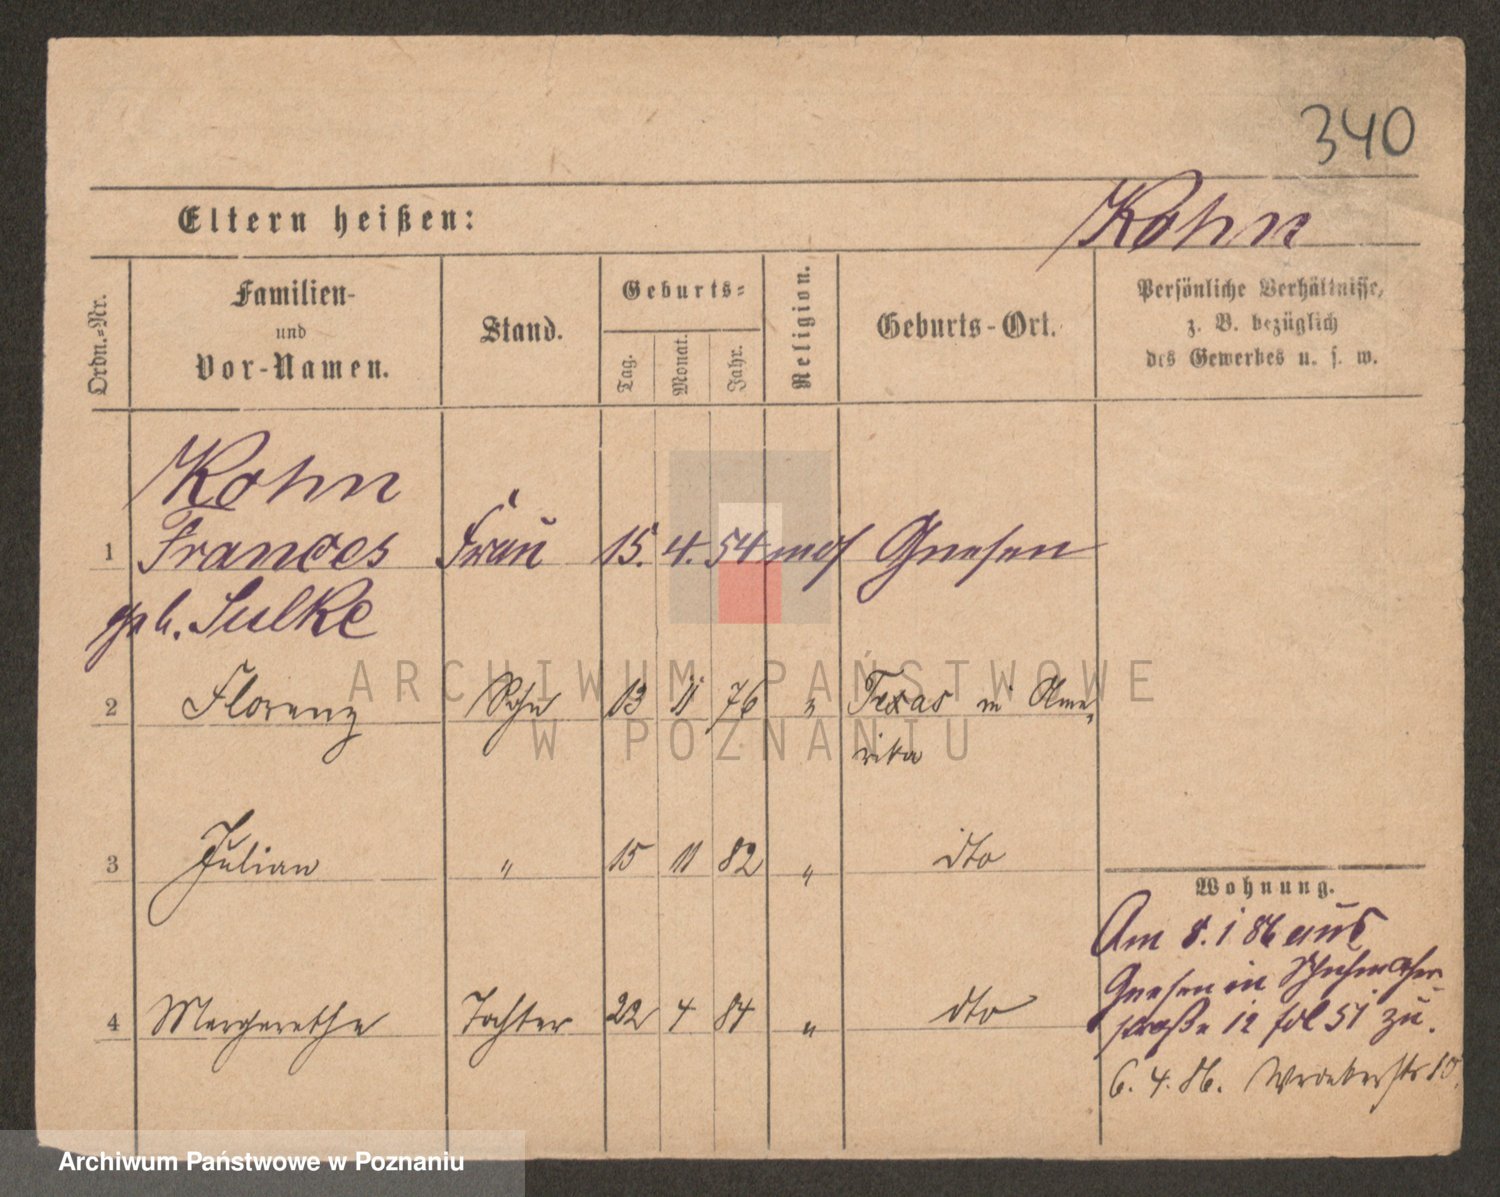 340
Eltern heißen:
Kohn
Ordn.-Nr.
Familien-
und
Vor-Namen.
Stand.
Geburts-
Tag.
Monat.
Jahr.
Religion.
Geburts-Ort.
Persönliche Verhältnisse,
z. B. bezüglich
des Gewerbes u. s. w.
Kohn
1 Frances Frau 15. 4. 54 mos Gnesen
geb. Sulke
2 Florenz Sohn 13 11 76 " Texas in Ame-
rika
3 Julian " 15 11 82 " dto
4 Margarethe Tochter 22 4 84 " dto
Wohnung.
Am 8. 1 86 aus
Gnesen in Schuhmacher-
straße 12 fol 51 zu.
6. 4. 86. Wronkerstr 10.
ARCHIWUM PAŃSTWOWE
W POZNANIU
Archiwum Państwowe w Poznaniu